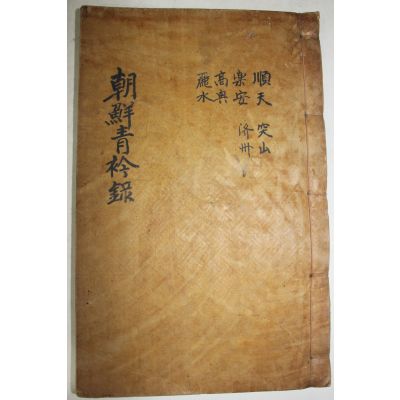 順天 突山
楽安 济州
高興
麗水
朝鮮青衿錄